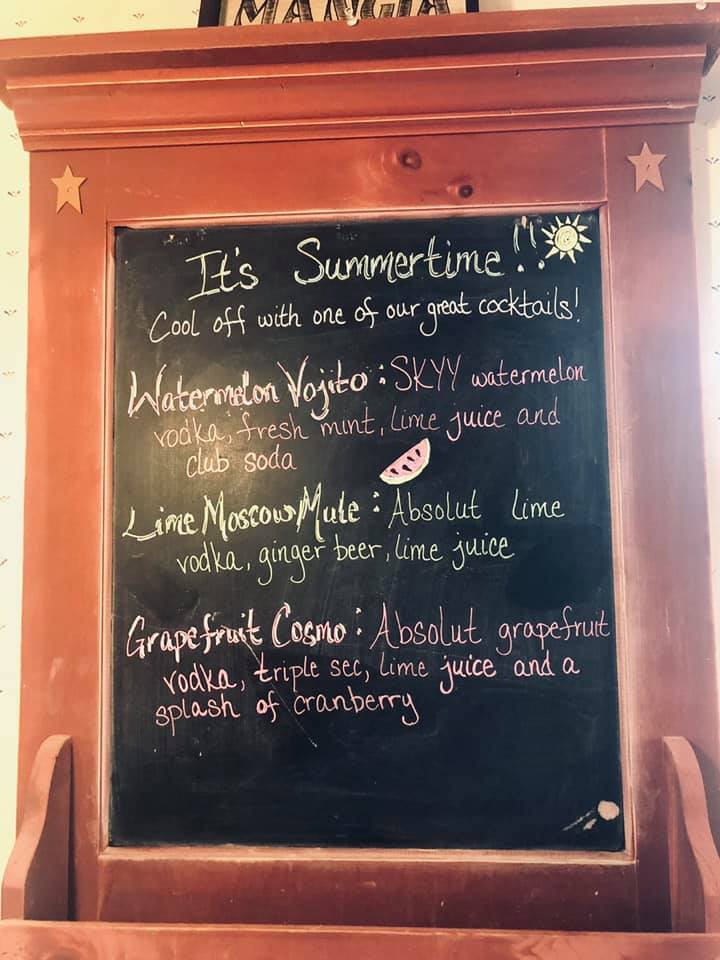 MANGIA
It's Summertime!!
Cool off with one of our great cocktails!
Watermelon Vojito: SKYY watermelon
vodka, fresh mint, lime juice and
club soda
Lime Moscow Mule: Absolut lime
vodka, ginger beer, lime juice
Grapefruit Cosmo: Absolut grapefruit
vodka, triple sec, lime juice and a
splash of cranberry